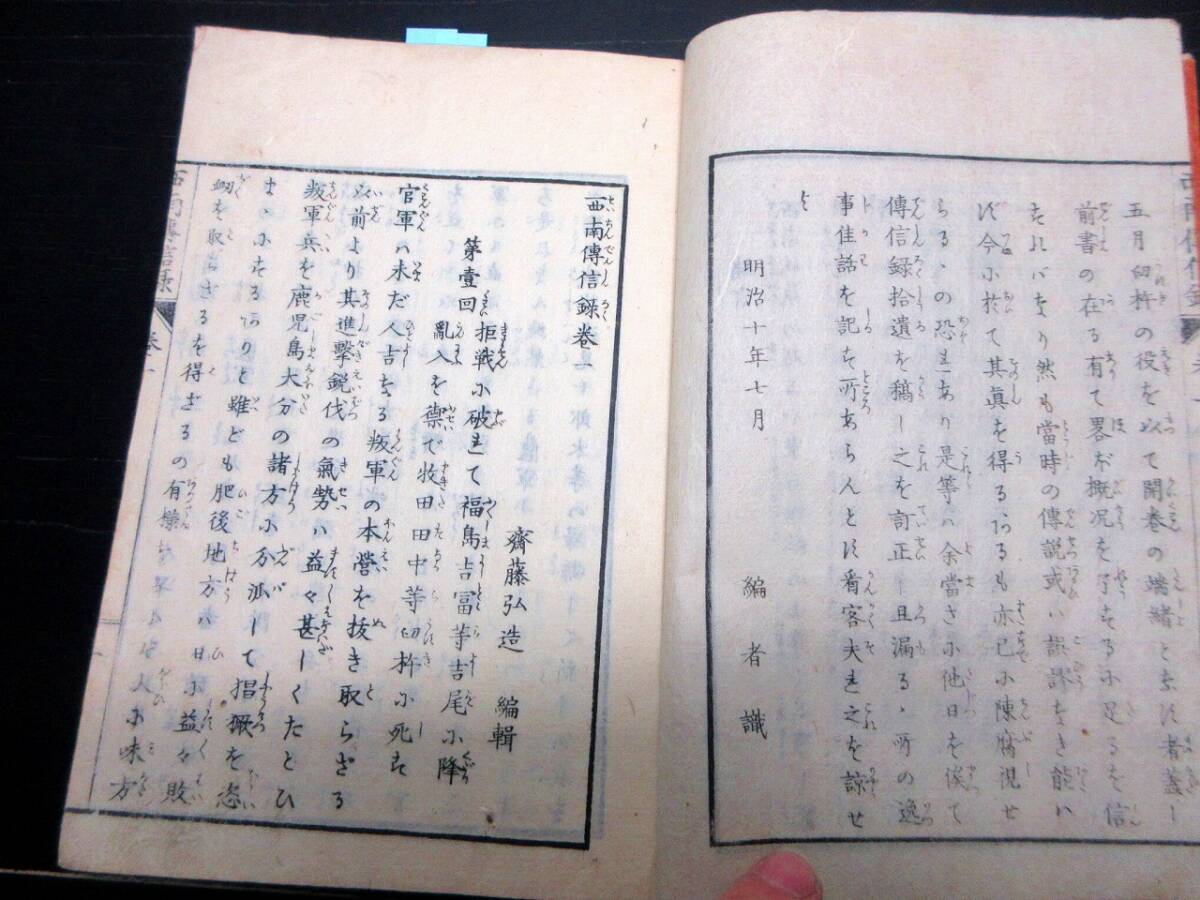 五月臼杵の役を以て開巻の端緒となす者蓋し
前書の在る有て畧ボ概況を了するに足るを信
ずれバなり然も當時の傳説或ハ誤謬なき能ハ
ず今に於て其眞を得るゝあるも亦已に陳腐視せ
らるゝの恐れあり是等ハ余當さに他日を俟て
傳信録拾遺を稿し之を訂正し且漏るゝ所の逸
事佳話を記する所あらんとす看客夫れ之を諒せ
よ
明治十年七月
編者識
西南傳信録巻一
齋藤弘造 編輯
第壹回 拒戦に破れて福島吉冨等吉尾に降
亂入を禦で牧田田中等臼杵に死す
官軍の未だ人吉なる叛軍の本營を抜き取らざる
以前より其進撃鋭伐の氣勢ハ益々甚しくたとひ
叛軍兵を鹿児島大分の諸方に分派して猖獗を恣
まゝにするありと雖ども肥後地方ハ日に益々敗
衂を取らざるを得ざるの有様
に味方
西南傳信録
巻一